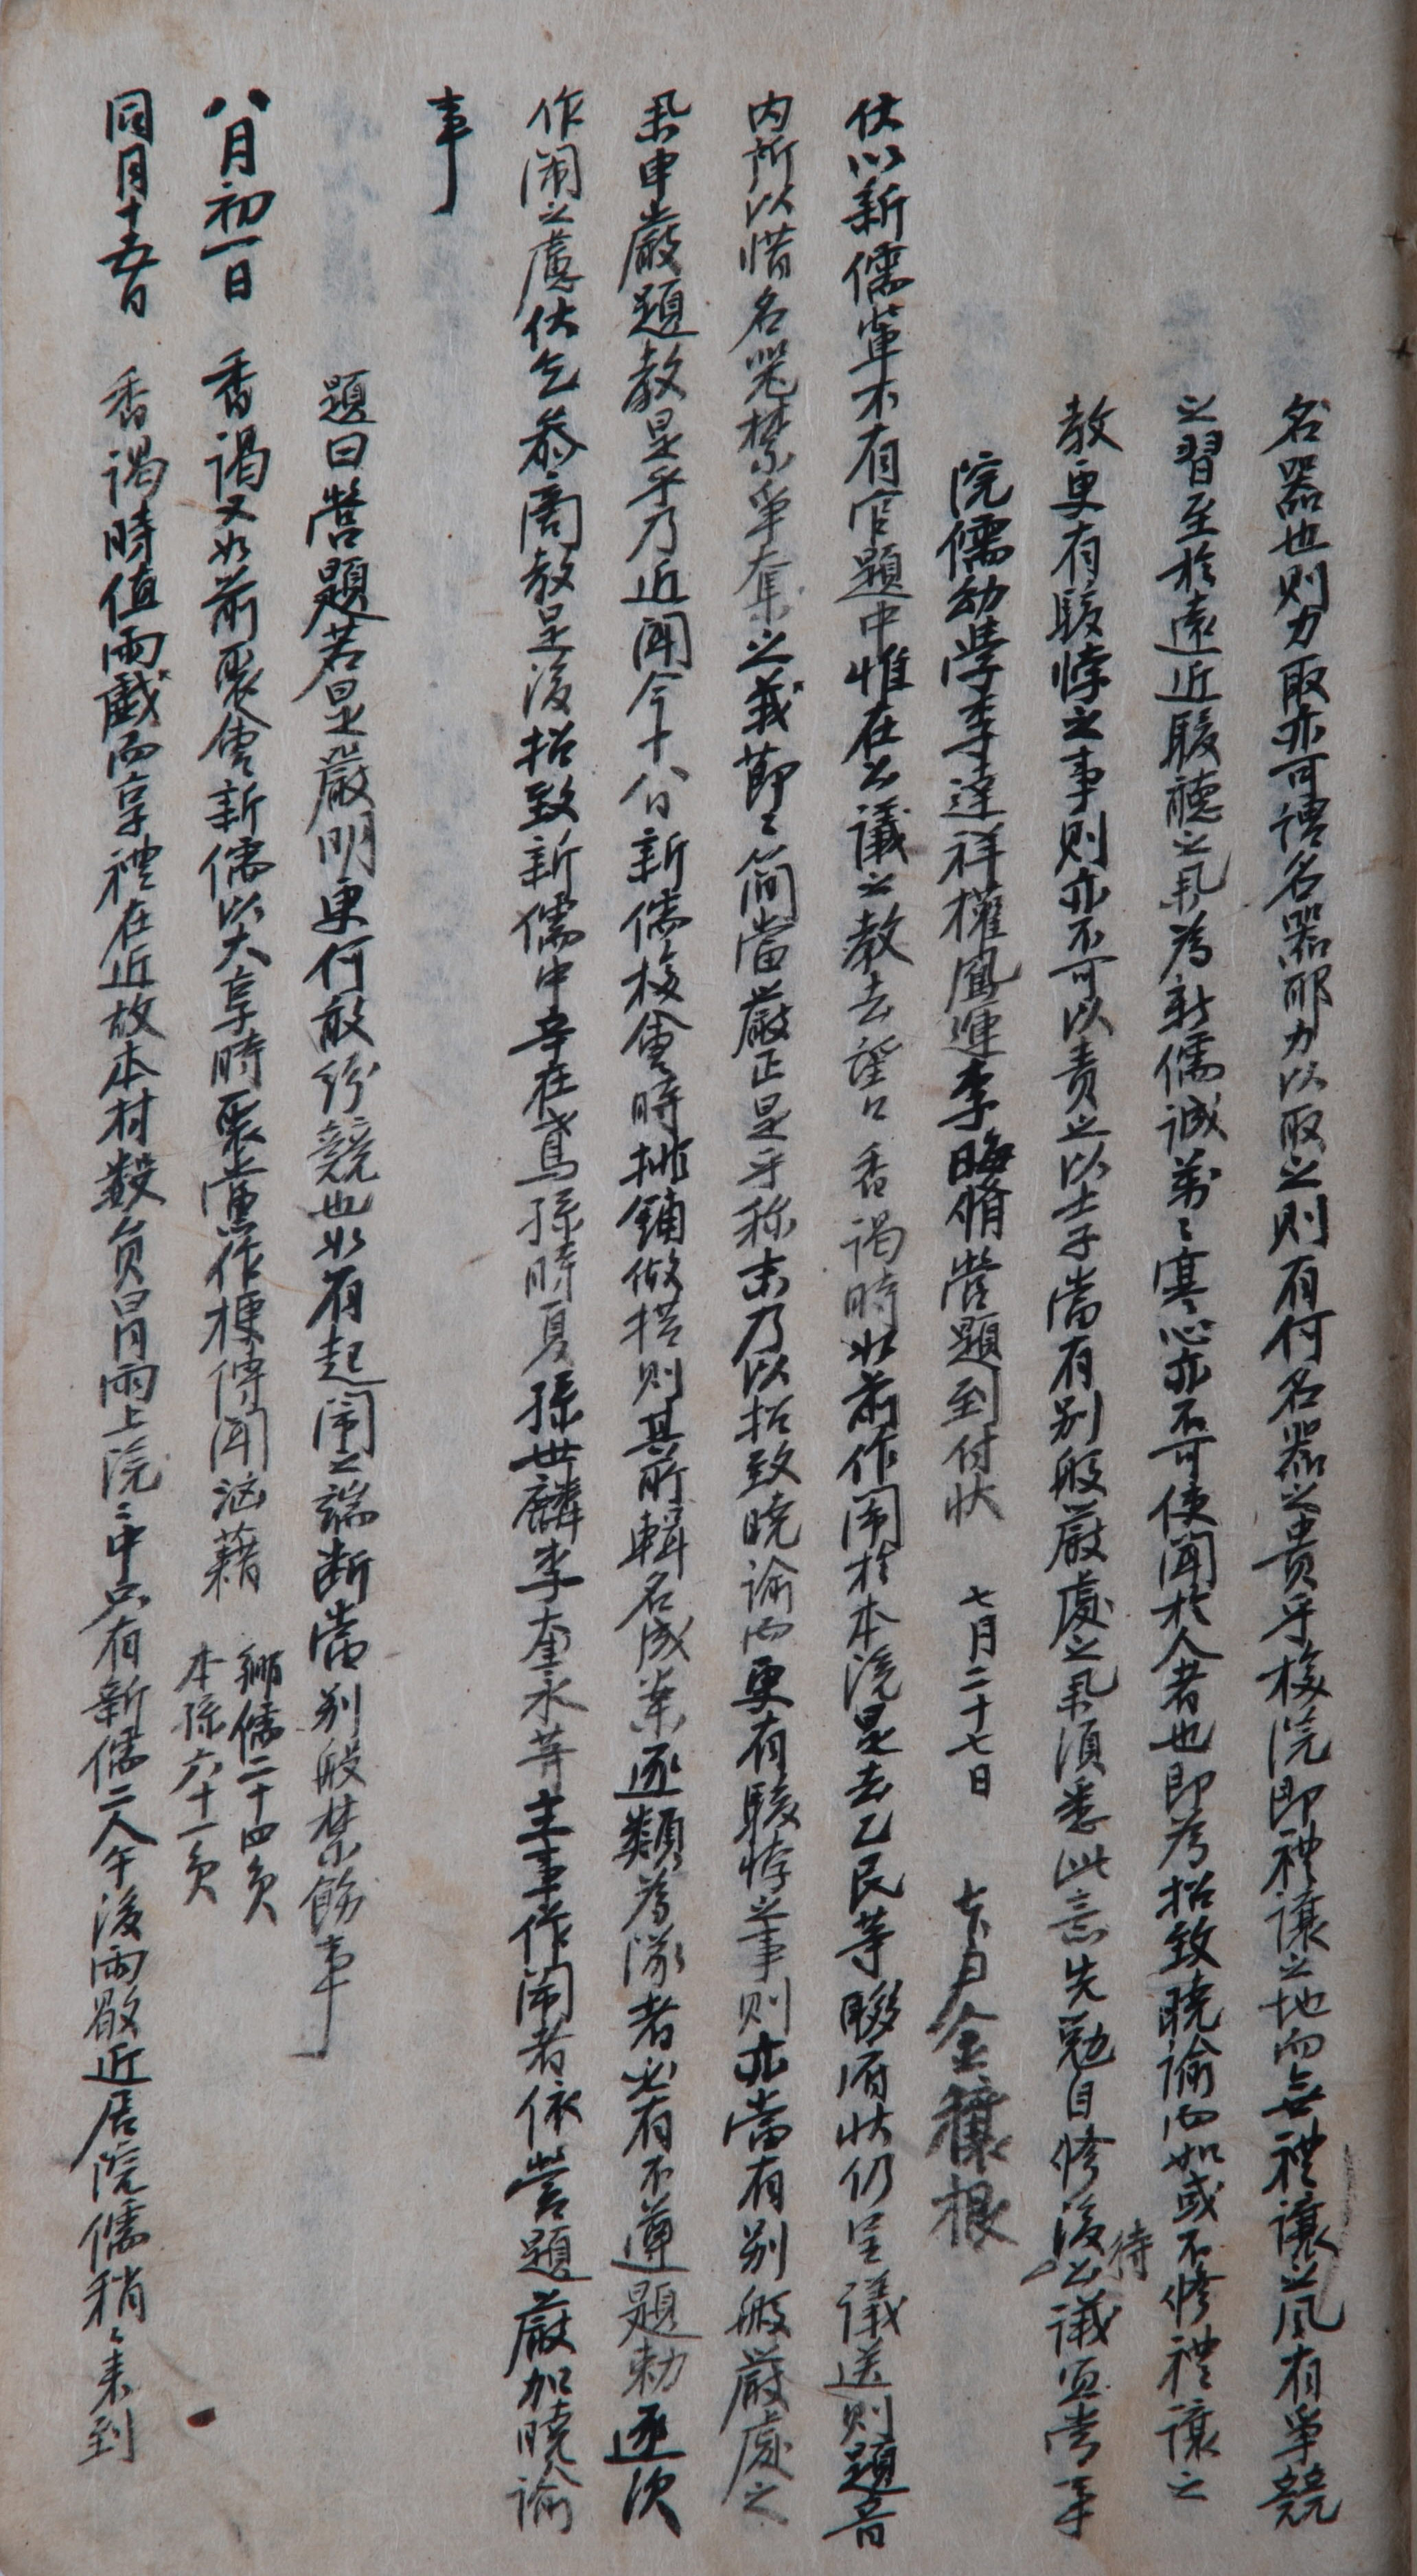 名器也則力取亦可謂名器耶力以取之則有何名器之貴乎校院卽禮讓之地而無禮讓之風有爭競
之習至於遠近駭聽之風爲新儒誠萬〻寒心亦不可使聞於人者也卽爲招致曉諭而如或不修禮讓之
教更有駭悖之事則亦不可以責之以士子當有別般嚴處之風須悉此意先勉自修後待公議宜當事
院儒幼學李達祥權鳳運李晦脩營題到付狀 七月二十七日 七下戶金穰根
伏以新儒輩不有官題中惟在公議之教去望日香謁時如前作鬧於本院是去乙民等聯府狀仍呈議送則題音
內所以惜名器禁爭奪之義節〻簡當嚴正是乎称末乃以招致曉諭而更有駭悖之事則亦當有別般嚴處之
風申嚴題教是乎乃近聞今十八日新儒校會時排鋪做措則其前輯名成案逐類爲隊者必有不遵題勅逐次
作鬧之慮伏乞叅商教是後招致新儒中辛在鳶孫時夏孫世麟李奎永等主事作鬧者依營題嚴加曉諭
事
題曰營題若是嚴明更何敢紛競也如有起鬧之端斷當別般禁飭事
八月初一日 香謁又如前聚會新儒以大享時聚黨作梗傳聞洶藉 鄕儒二十四員
本孫六十一員
同月十五日 香謁時值雨戱而享禮在近故本村數員冒雨上院〻中只有新儒二人午後雨歇近居院儒稍〻來到